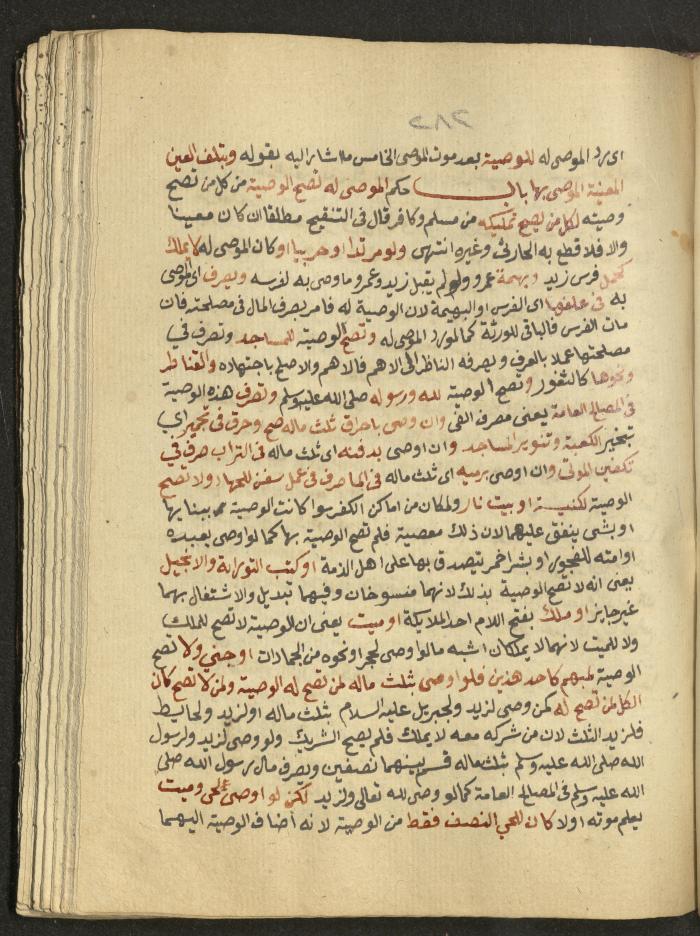 ٢٨٢
اى رد الموصى له للوصية بعد موت الموصى الخامس ما اشار اليه بقوله وبتلف العين
المعينة الموصى بها باب حكم الموصى له تصح الوصية من كل من تصح
وصيته لكل من يصح تمليكه من مسلم وكافر قال فى التنقيح مطلقا ان كان معينا
والا فلا قطع به الحارثى وغيره انتهى ولو مرتدا او حربيا او كان الموصى له لا يملك
كحمل فرس زيد وبهيمة عمرو ولو لم يقبل زيد وعمرو ما وصى به لفرسه ويصرف اى الموصى
به فى علفها اى الفرس او البهيمة لان الوصية له فامر بصرف المال فى مصلحته فان
مات الفرس فالباقى للورثة كما لو رد الموصى له وتصح الوصية للمساجد وتصرف في
مصلحتها عملا بالعرف ويصرفه الناظر الى الاهم فالاهم والاصلح باجتهاده والقناطر
ونحوها كالثغور وتصح الوصية لله ورسوله صلى الله عليه وسلم وتصرف هذه الوصية
فى المصالح العامة يعنى مصرف الفى وان وصى باحراق ثلث ماله صح وصرف فى تجمير اي
تبخير الكعبة وتنوير المساجد وان اوصى بدفنه اى ثلث ماله فى التراب صرف في
تكفين الموتى وان اوصى برميه اى ثلث ماله فى الماء صرف فى عمل سفن للجهاد ولا تصح
الوصية لكنيسة او بيت نار ولمكان من اماكن الكفر سوا كانت الوصية ببنايها
او بشى ينفق عليهما لان ذلك معصية فلم تصح الوصية بها كما لو اوصى بعبده
او امته للفجور او بشراء خمر يتصدق بها على اهل الذمة او كتب التوراية والانجيل
يعنى انه لا تصح الوصية بذلك لانهما منسوخان وفيهما تبديل والاشتغال بهما
غير جايز او ملك بفتح اللام احد الملايكة او ميت يعنى ان الوصية لا تصح للملك
ولا للميت لانهما لا يملكان اشبه ما لو اوصى لحجر او نحوه من الجمادات او جني ولا تصح
الوصية لمبهم كاحد هذين فلو اوصى بثلث ماله لمن تصح له الوصية ولمن لا تصح كان
الكل لمن تصح له كمن وصى لزيد ولجبريل عليه السلام بثلث ماله او لزيد ولحايط
فلزيد الثلث لان من شركه معه لا يملك فلم يصح التشريك ولو وصى لزيد ولرسول
الله صلى الله عليه وسلم بثلث ماله قسم بينهما نصفين ويصرف مال رسول الله صلى
الله عليه وسلم فى المصالح العامة كما لو وصى لله تعالى ولزيد لكن لو اوصى لحى وميت
يعلم موته اولا كان للحى النصف فقط من الوصية لانه اضاف الوصية اليهما